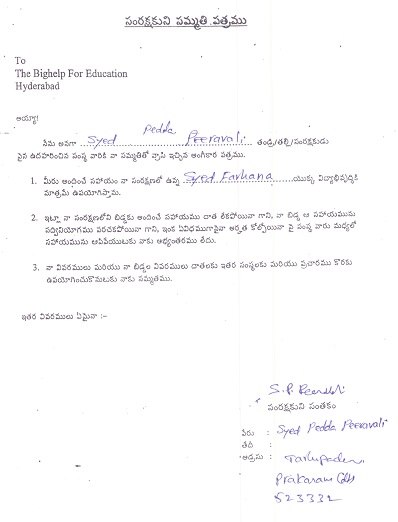 సంరక్షకుని సమ్మతి పత్రము
To
The Bighelp For Education
Hyderabad
అయ్యా!
నేను అనగా Syed Pedda Peeravali తండ్రి/తల్లి/సంరక్షకుడు
పైన ఉదహరించిన సంస్థ వారికి నా సమ్మతితో వ్రాసి ఇచ్చిన అంగీకార పత్రము.
1. మీరు అందించే సహాయం నా సంరక్షణలో ఉన్న Syed Farhana యొక్క విద్యాభివృద్ధికి
మాత్రమే ఉపయోగిస్తాను.
2. ఇట్లా నా సంరక్షణలోని బిడ్డకు అందించే సహాయము దాత లేకపోయినా గాని, నా బిడ్డ ఆ సహాయమును
సద్వినియోగము పరచకపోయినా గాని, ఇంక ఏవిధముగానైనా అర్హత కోల్పోయినా పై సంస్థ వారు మధ్యలో
సహాయమును ఆపివేయుటకు నాకు అభ్యంతరము లేదు.
3. నా వివరములు మరియు నా బిడ్డల వివరములు దాతలకు ఇతర సంస్థలకు మరియు ప్రచారము కొరకు
ఉపయోగించుకొనుటకు నాకు సమ్మతము.
ఇతర వివరములు ఏమైనా :-
S. P.
సంరక్షకుని సంతకం
పేరు : Syed Pedda Peeravali
తేది :
అడ్రసు :
523332